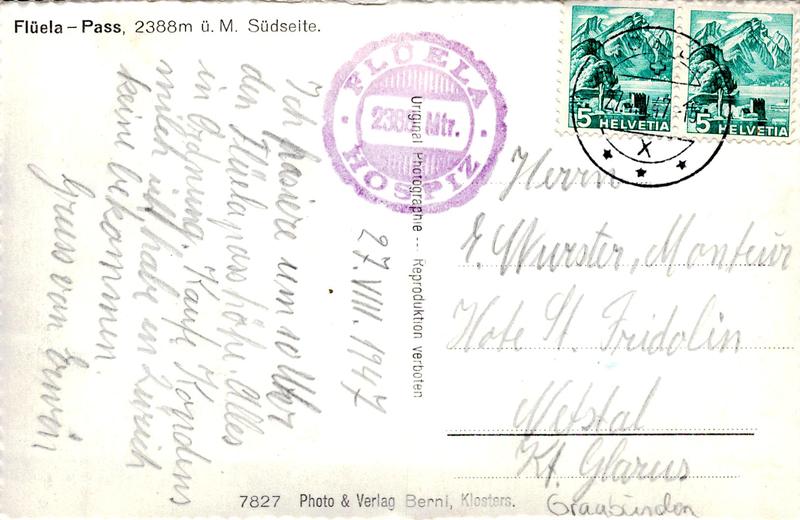 Flüela – Pass, 2388m ü. M. Südseite.
FLÜELA
2388 Mtr.
HOSPIZ
5 HELVETIA
5 HELVETIA
X
27.VIII.1947
Ich passiere um 10 Uhr
den Flüelapasshöhe. Alles
in Ordnung. Kaufe Kondens
milch ich habe in Zürich
keine bekommen.
Gruss von Erwin
Original Photographie --- Reproduktion verboten
Herrn
E. Wurster, Monteur
Hote St. Fridolin
Netstal
Kt. Glarus
Graubünden
7827 Photo & Verlag Berni, Klosters.